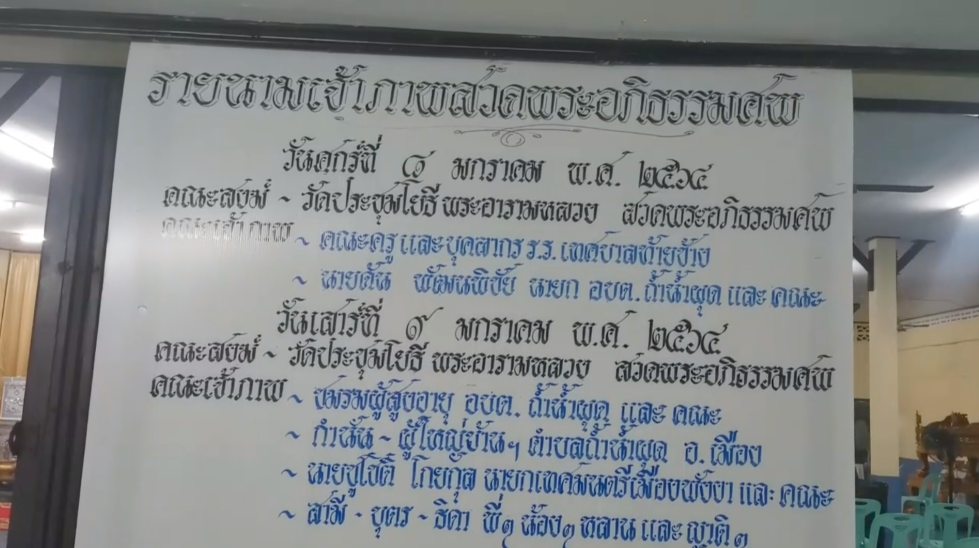 รายนามเจ้าภาพสวดพระอภิธรรมศพ
วันศุกร์ที่ ๘ มกราคม พ.ศ. ๒๕๖๔
คณะสงฆ์ ~ วัดประชุมโยธี พระอารามหลวง สวดพระอภิธรรมศพ
คณะเจ้าภาพ ~ คณะครู และบุคลากร ร.ร. เทศบาลท้ายช้าง
~ นายดัน พัฒนพิชัย นายก อบต. ถ้ำน้ำผุด และ คณะ
วันเสาร์ที่ ๙ มกราคม พ.ศ. ๒๕๖๔
คณะสงฆ์ ~ วัดประชุมโยธี พระอารามหลวง สวดพระอภิธรรมศพ
คณะเจ้าภาพ ~ ชมรมผู้สูงอายุ อบต. ถ้ำน้ำผุด และ คณะ
~ กำนัน - ผู้ใหญ่บ้านฯ ตำบลถ้ำน้ำผุด อ. เมือง
~ นายชูโชติ โกยกุล นายกเทศมนตรีเมืองพังงา และ คณะ
~ สามี - บุตร - ธิดา พี่ๆ น้องๆ หลาน และ ญาติๆ